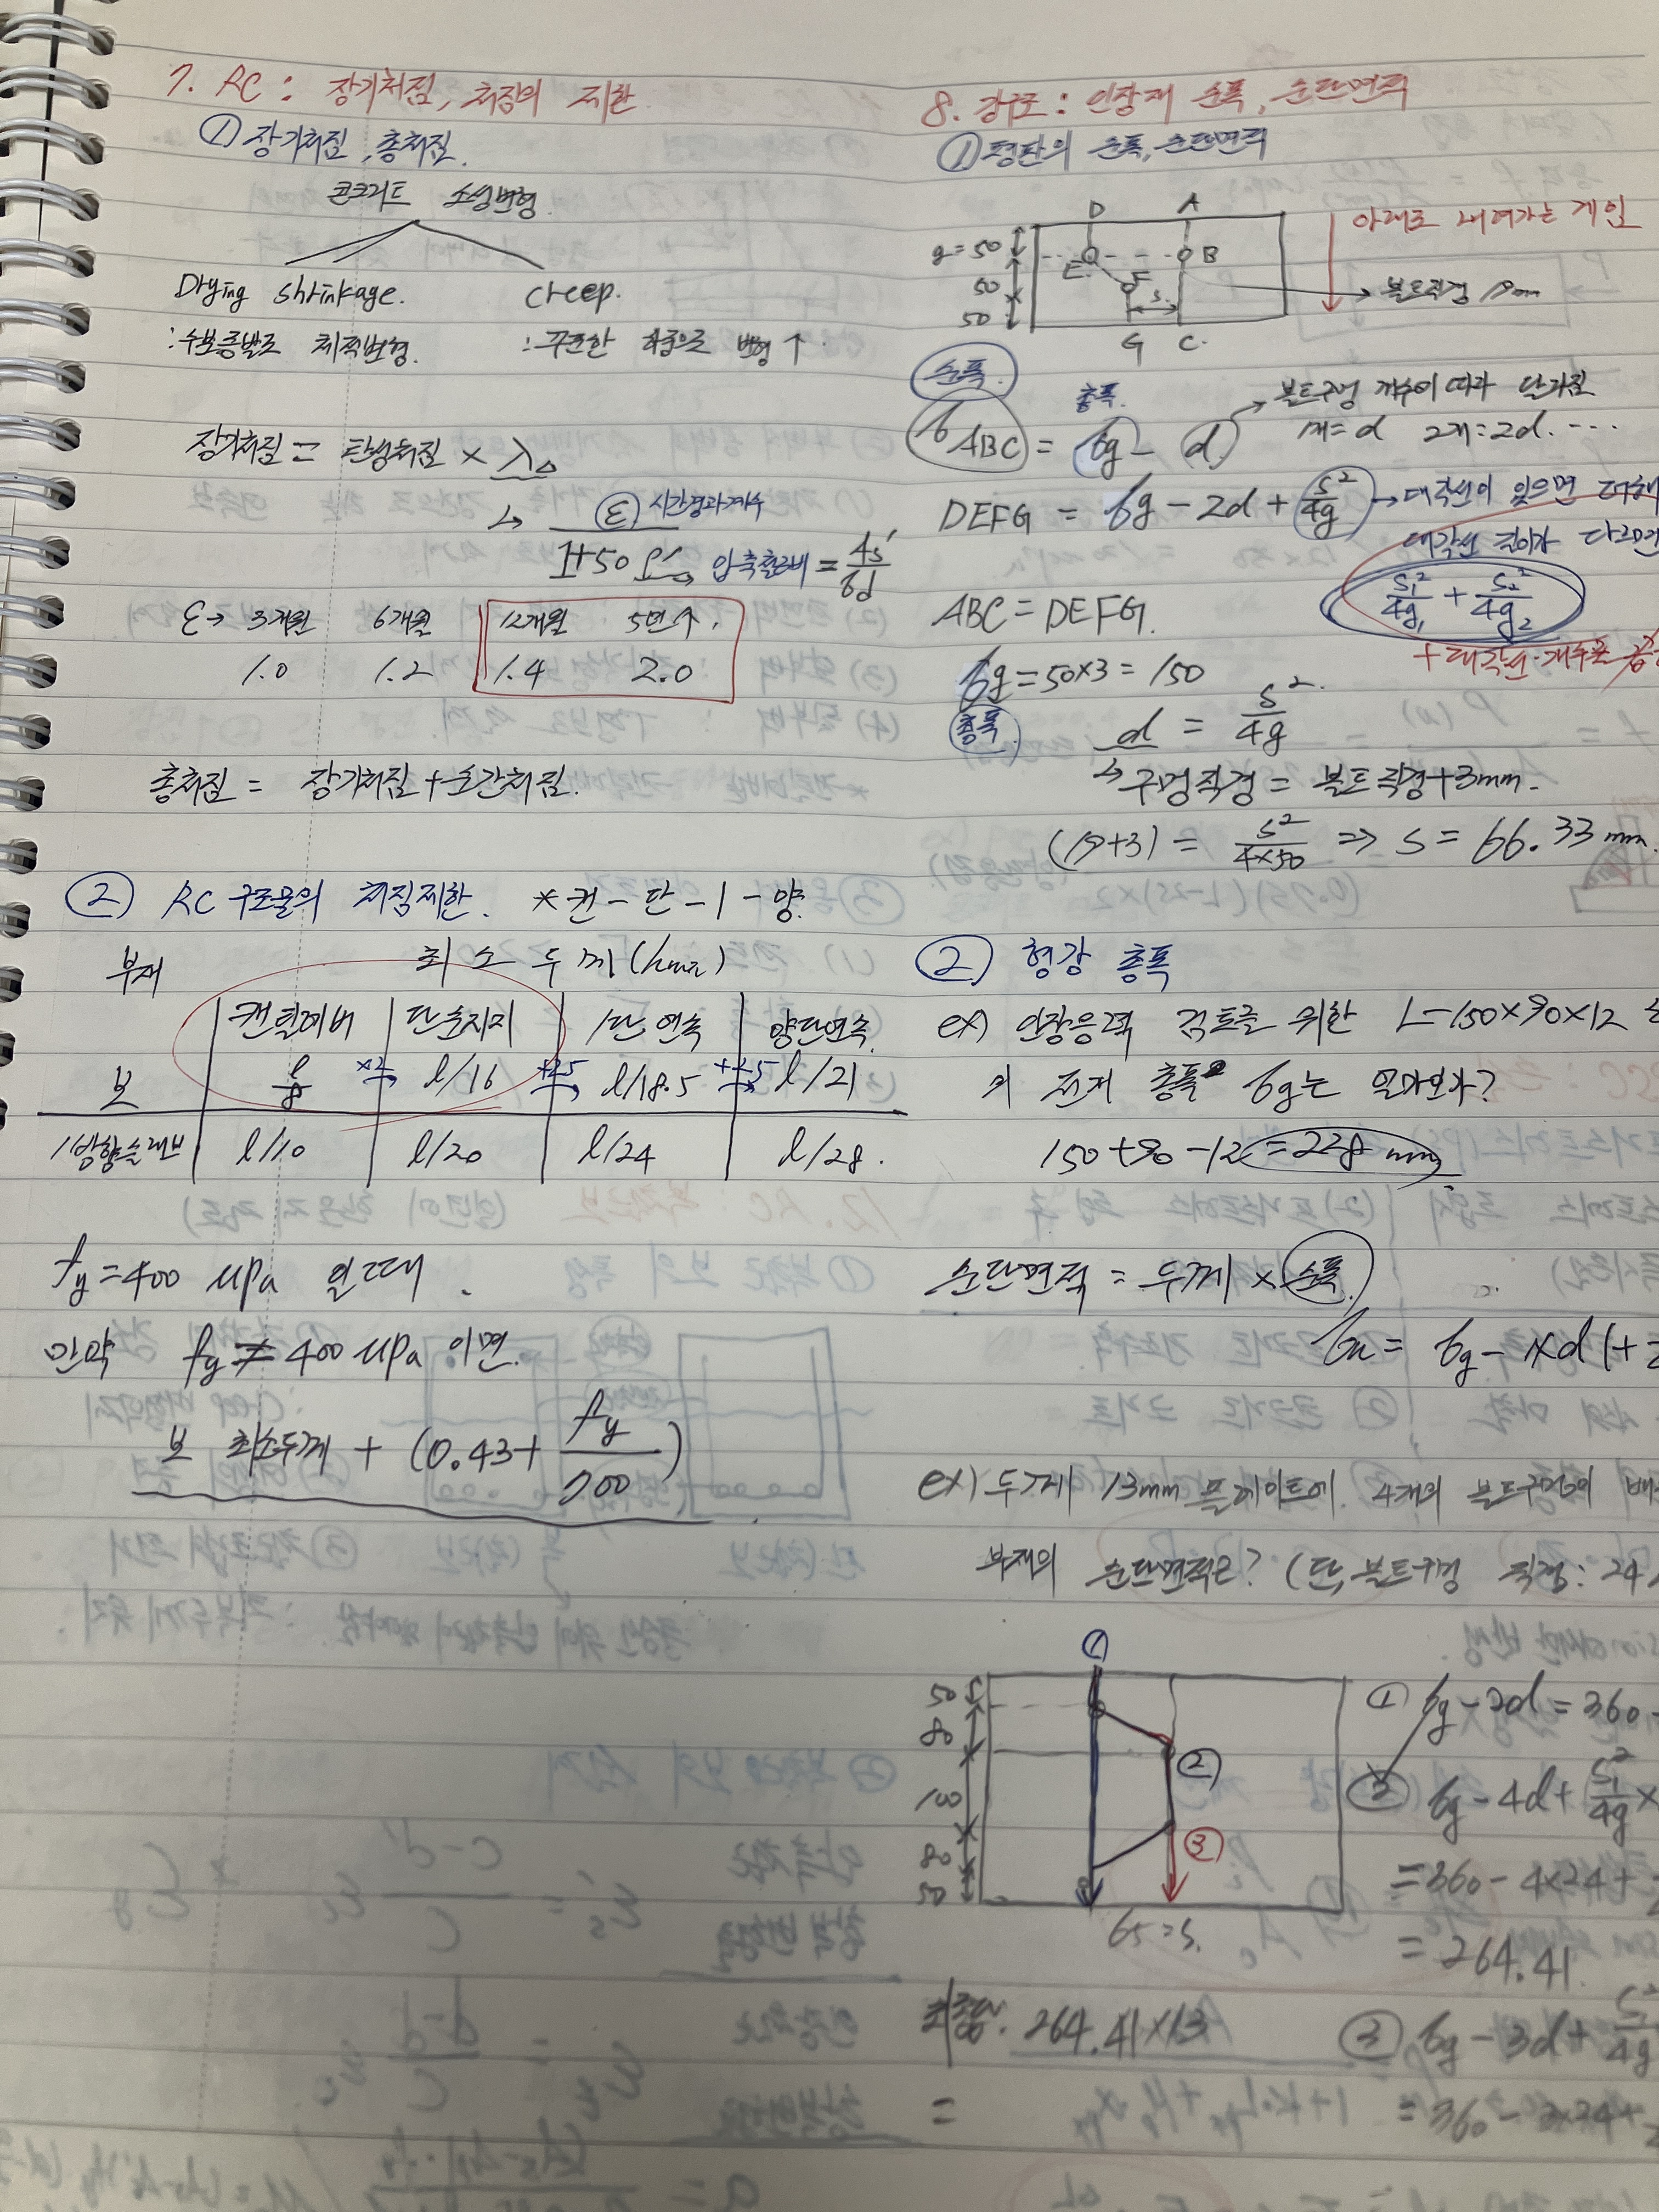 7. RC : 장기처짐, 처짐의 제한
① 장기처짐, 총처짐.
콘크리트 소성변형
Drying shrinkage. creep.
: 수분증발로 체적변형. : 꾸준한 하중으로 변형 ↑.
장기처짐 = 탄성처짐 × λΔ
↳ ξ 시간경과계수
1+50ρ' → 압축철근비 = As'/bd
ξ → 3개월 6개월 12개월 5년↑.
1.0 1.2 1.4 2.0
총처짐 = 장기처짐 + 순간처짐.
② RC 구조물의 처짐제한. * 켄 - 단 - 1 - 양.
부재 최소 두께 (hmin)
캔틸레버 단순지지 1단 연속 양단연속.
보 l/8 ×2→ l/16 +2.5→ l/18.5 +2.5→ l/21
1방향슬래브 l/10 l/20 l/24 l/28.
fy = 400 MPa 일때.
만약 fy ≠ 400 MPa 이면.
보 최소두께 + (0.43 + fy/700)
8. 강구조 : 인장재 순폭, 순단면적
① 평판의 순폭, 순단면적
D A
g=50 E B
50 F s
50 G C.
아래로 내려가는 게임
볼트직경 19mm
순폭.
총폭. 볼트구멍 개수에 따라 달라짐
bABC = bg - d 1개=d 2개=2d. ....
DEFG = bg - 2d + s²/4g → 대각선이 있으면 더해
대각선 길이가 다르면
s₁²/4g₁ + s₂²/4g₂
+ 대각선 개수를
ABC = DEFG.
bg = 50×3 = 150
총폭. d = s²/4g
↳ 구멍직경 = 볼트직경+3mm.
(19+3) = s²/4×50 ⇒ s = 66.33 mm.
② 형강 총폭
ex) 인장응력 검토를 위한 L-150×90×12
의 전개 총폭 bg는 얼마인가?
150+90-12 = 228 mm.
순단면적 = 두께 × 순폭.
bn = bg -
ex) 두께 13mm 플레이트에 4개의 볼트구멍의 배
부재의 순단면적은? (단, 볼트구멍 직경: 24
①
50
80
②
100
80 ③
50
65 = s.
① bg - 2d = 360 -
② bg - 4d + s₁²/4g ×
= 360 - 4×24 +
= 264.41.
③ bg - 3d + s²/4g
= 360 - 3×24 +
최종답. 264.41×13
=